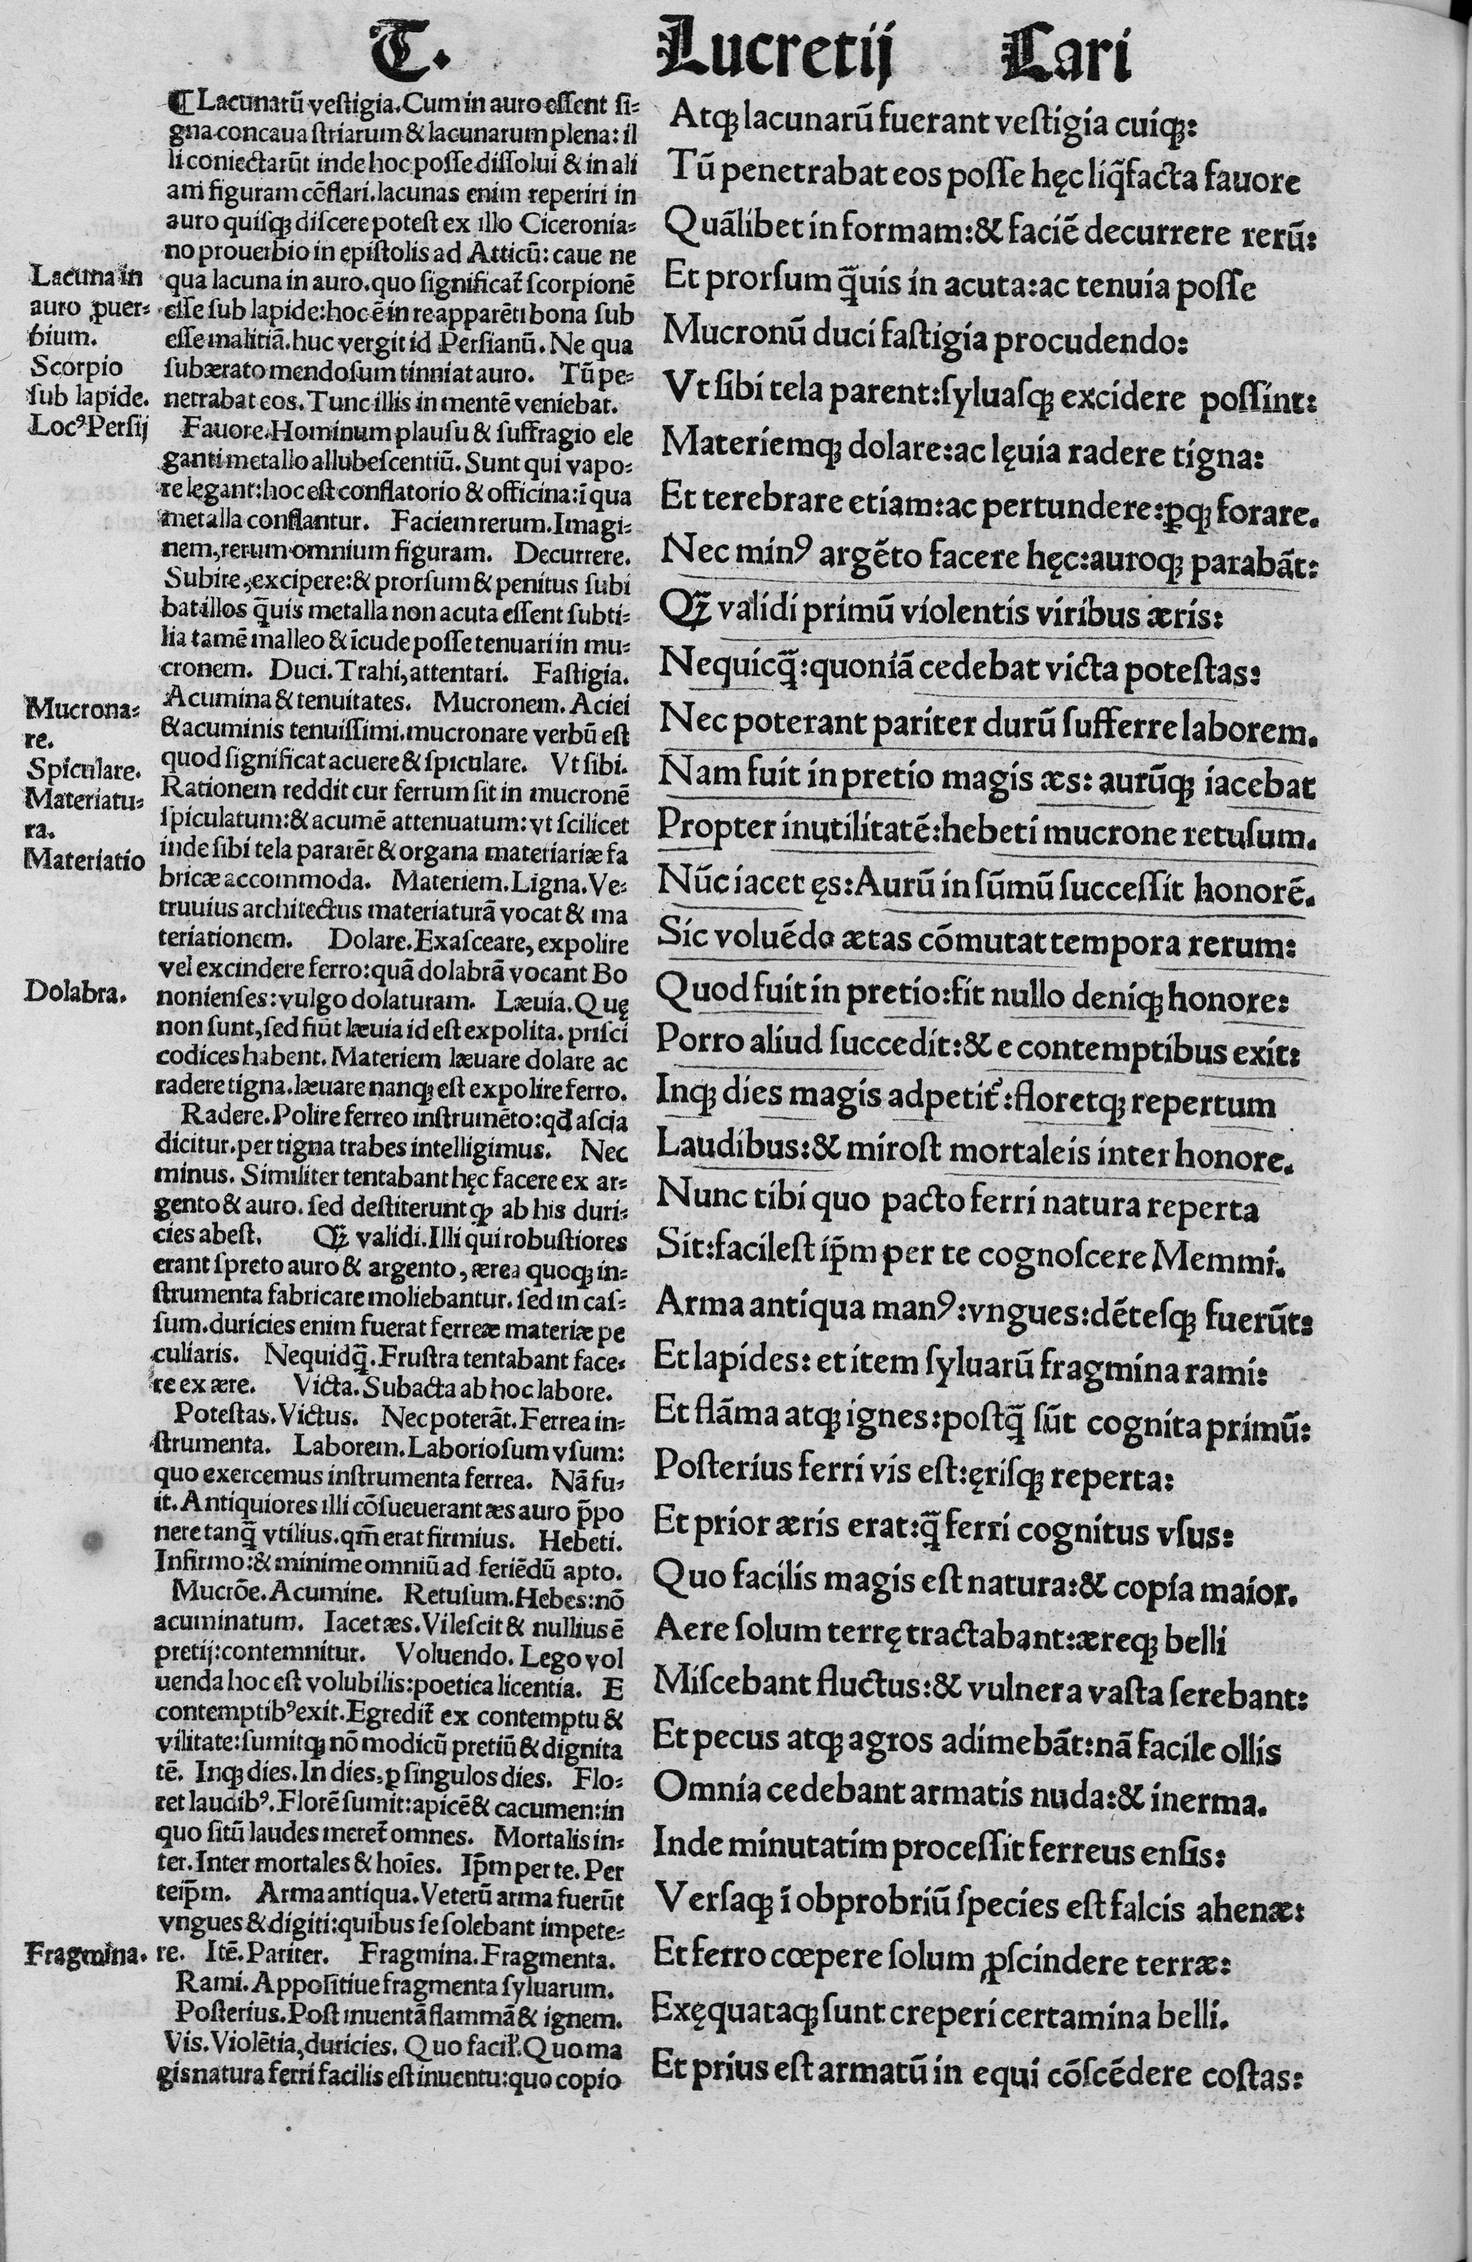 T. Lucretij Cari
¶ Lacunarū vestigia. Cum in auro essent si-
gna concaua striarum & lacunarum plena: il
li coniectarūt inde hoc posse dissolui & in ali
am figuram cōflari. lacunas enim reperiri in
auro quisqꝫ discere potest ex illo Ciceronia-
no prouerbio in epistolis ad Atticū: caue ne
qua lacuna in auro. quo significat̃ scorpionē
esse sub lapide: hoc ē in re apparēti bona sub
esse malitiā. huc vergit id Persianū. Ne qua
subærato mendosum tinniat auro. Tū pe-
netrabat eos. Tunc illis in mentē veniebat.
Fauore. Hominum plausu & suffragio ele
ganti metallo allubescentiū. Sunt qui vapo-
re legant: hoc est conflatorio & officina: ī qua
metalla conflantur. Faciem rerum. Imagi-
nem, rerum omnium figuram. Decurrere.
Subire, excipere: & prorsum & penitus subi
bat illos q̄uis metalla non acuta essent subti-
lia tamē malleo & īcude posse tenuari in mu-
cronem. Duci. Trahi, attentari. Fastigia.
Acumina & tenuitates. Mucronem. Aciei
& acuminis tenuissimi. mucronare verbū est
quod significat acuere & spiculare. Vt sibi.
Rationem reddit cur ferrum sit in mucronē
spiculatum: & acumē attenuatum: vt scilicet
inde sibi tela pararēt & organa materiariæ fa
bricæ accommoda. Materiem. Ligna. Ve-
truuius architectus materiaturā vocat & ma
teriationem. Dolare. Exasceare, expolire
vel excindere ferro: quā dolabrā vocant Bo
nonienses: vulgo dolaturam. Læuia. Quę
non sunt, sed fiūt læuia id est expolita. prisci
codices habent. Materiem læuare dolare ac
radere tigna. læuare nanqꝫ est expolire ferro.
Radere. Polire ferreo instrumēto: qđ ascia
dicitur. per tigna trabes intelligimus. Nec
minus. Similiter tentabant hęc facere ex ar-
gento & auro. sed destiterunt qꝫ ab his duri-
cies abest. Qꝫ validi. Illi qui robustiores
erant spreto auro & argento, ærea quoqꝫ in-
strumenta fabricare moliebantur. sed in cas-
sum. duricies enim fuerat ferreæ materiæ pe
culiaris. Nequidq̄. Frustra tentabant face-
re ex ære. Victa. Subacta ab hoc labore.
Potestas. Victus. Nec poterāt. Ferrea in-
strumenta. Laborem. Laboriosum vsum:
quo exercemus instrumenta ferrea. Nā fu-
it. Antiquiores illi cōsueuerant æs auro p̄po
nere tanq̄ vtilius. qm̄ erat firmius. Hebeti.
Infirmo: & minime omniū ad feriēdū apto.
Mucrōe. Acumine. Retusum. Hebes: nō
acuminatum. Iacet æs. Vilescit & nullius ē
pretij: contemnitur. Voluendo. Lego vol
uenda hoc est volubilis: poetica licentia. E
contemptibꝰ exit. Egredit̃ ex contemptu &
vilitate: sumitqꝫ nō modicū pretiū & dignita
tē. Inqꝫ dies. In dies. ꝑ singulos dies. Flo-
ret laudibꝰ. Florē sumit: apicē & cacumen: in
quo sitū laudes meret̃ omnes. Mortalis in-
ter. Inter mortales & hoīes. Ip̄m per te. Per
teip̄m. Arma antiqua. Veterū arma fuerūt
vngues & digiti: quibus se solebant impete-
re. Itē. Pariter. Fragmina. Fragmenta.
Rami. Appositiue fragmenta syluarum.
Posterius. Post inuentā flammā & ignem.
Vis. Violētia, duricies. Quo facil̓. Quo ma
gis natura ferri facilis est inuentu: quo copio
Lacuna in
auro ꝓuer-
bium.
Scorpio
sub lapide.
Locꝰ Persij
Mucrona-
re.
Spiculare.
Materiatu-
ra.
Materiatio
Dolabra.
Fragmina.
Atqꝫ lacunarū fuerant vestigia cuiqꝫ:
Tū penetrabat eos posse hęc liq̄facta fauore
Quālibet in formam: & faciē decurrere rerū:
Et prorsum q̄uis in acuta: ac tenuia posse
Mucronū duci fastigia procudendo:
Vt sibi tela parent: syluasqꝫ excidere possint:
Materiemqꝫ dolare: ac lęuia radere tigna:
Et terebrare etiam: ac pertundere: ꝑqꝫ forare.
Nec minꝰ argēto facere hęc: auroqꝫ parabāt:
Qꝫ validi primū violentis viribus æris:
Nequicq̄: quoniā cedebat victa potestas:
Nec poterant pariter durū sufferre laborem.
Nam fuit in pretio magis æs: aurūqꝫ iacebat
Propter inutilitatē: hebeti mucrone retusum.
Nūc iacet ęs: Aurū in sūmū successit honorē.
Sic voluēdo ætas cōmutat tempora rerum:
Quod fuit in pretio: fit nullo deniqꝫ honore:
Porro aliud succedit: & e contemptibus exit:
Inqꝫ dies magis adpetit̃: floretqꝫ repertum
Laudibus: & mirost mortaleis inter honore.
Nunc tibi quo pacto ferri natura reperta
Sit: facilest ip̄m per te cognoscere Memmi.
Arma antiqua manꝰ: vngues: dētesqꝫ fuerūt:
Et lapides: et item syluarū fragmina rami:
Et flāma atqꝫ ignes: postq̄ sūt cognita primū:
Posterius ferri vis est: ęrisqꝫ reperta:
Et prior æris erat: q̄ ferri cognitus vsus:
Quo facilis magis est natura: & copia maior.
Aere solum terrę tractabant: æreqꝫ belli
Miscebant fluctus: & vulnera vasta serebant:
Et pecus atqꝫ agros adimebāt: nā facile ollis
Omnia cedebant armatis nuda: & inerma.
Inde minutatim processit ferreus ensis:
Versaqꝫ ī obprobriū species est falcis ahenæ:
Et ferro cœpere solum ꝓscindere terræ:
Exęquataqꝫ sunt creperi certamina belli.
Et prius est armatū in equi cōscēdere costas: